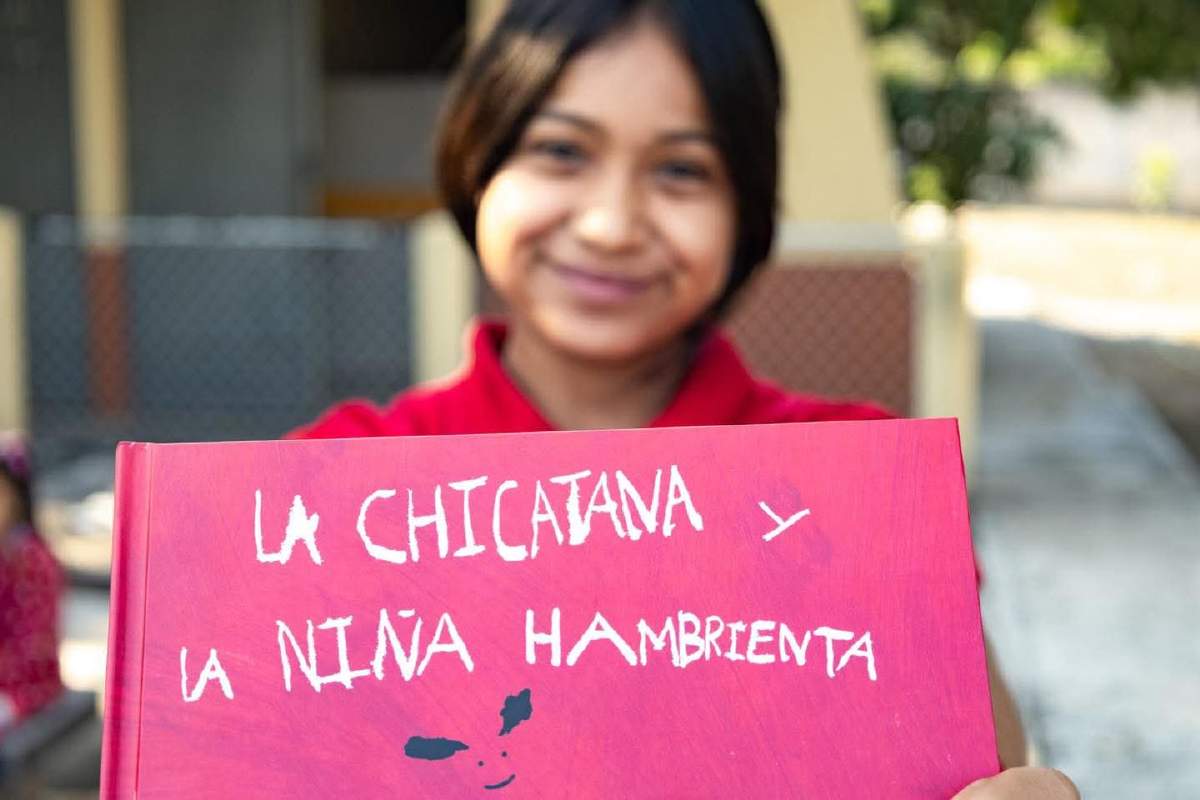 LA CHICATANA Y
LA NIÑA HAMBRIENTA